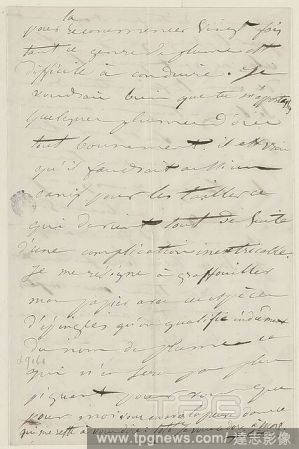 la
pour recommencer vingt fois
tant ce genre de plume est
difficile à conduire. Je
voudrais bien que tu m'apportes
quelques plumes d'oie
tout bonnement, il est vrai
qu'il faudrait aussi un
canif pour les tailler ce
qui devient tout de suite
d'une complication inextricable.
Je me résigne à graffouiller
mon papier avec cette espèce
d'épingles qu'on qualifie indûment
du nom de plume ce
qui n'en sera pas plus
piquant pour
pour moi
qui me reste à vous dire
TPG
www.tpgnews.com/達志影像